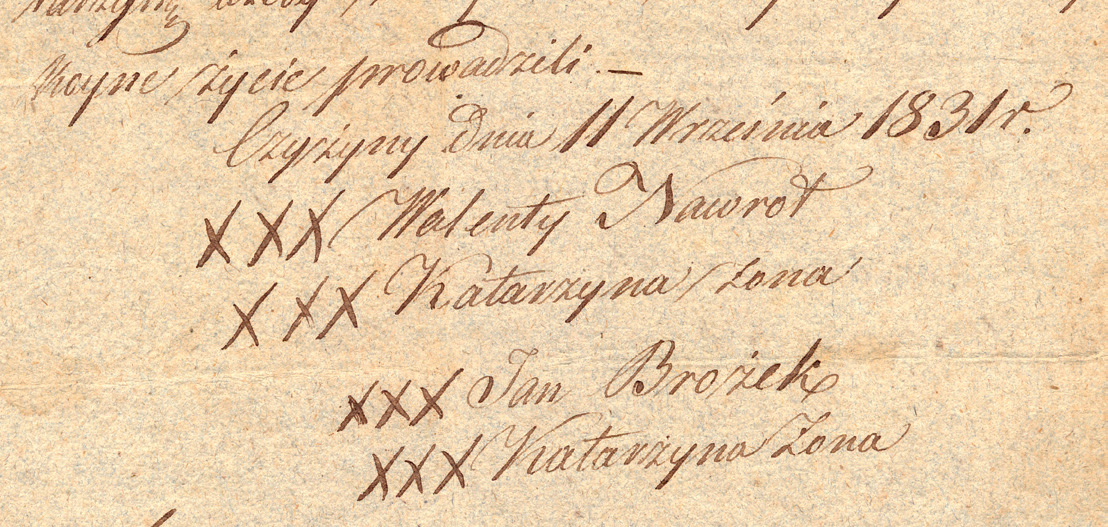 koyne życie prowadzili. —
Czyżyny dnia 11 Września 1831 r.
XXX Walenty Nawrot
XXX Katarzyna żona
XXX Jan Brożek
XXX Katarzyna Żona